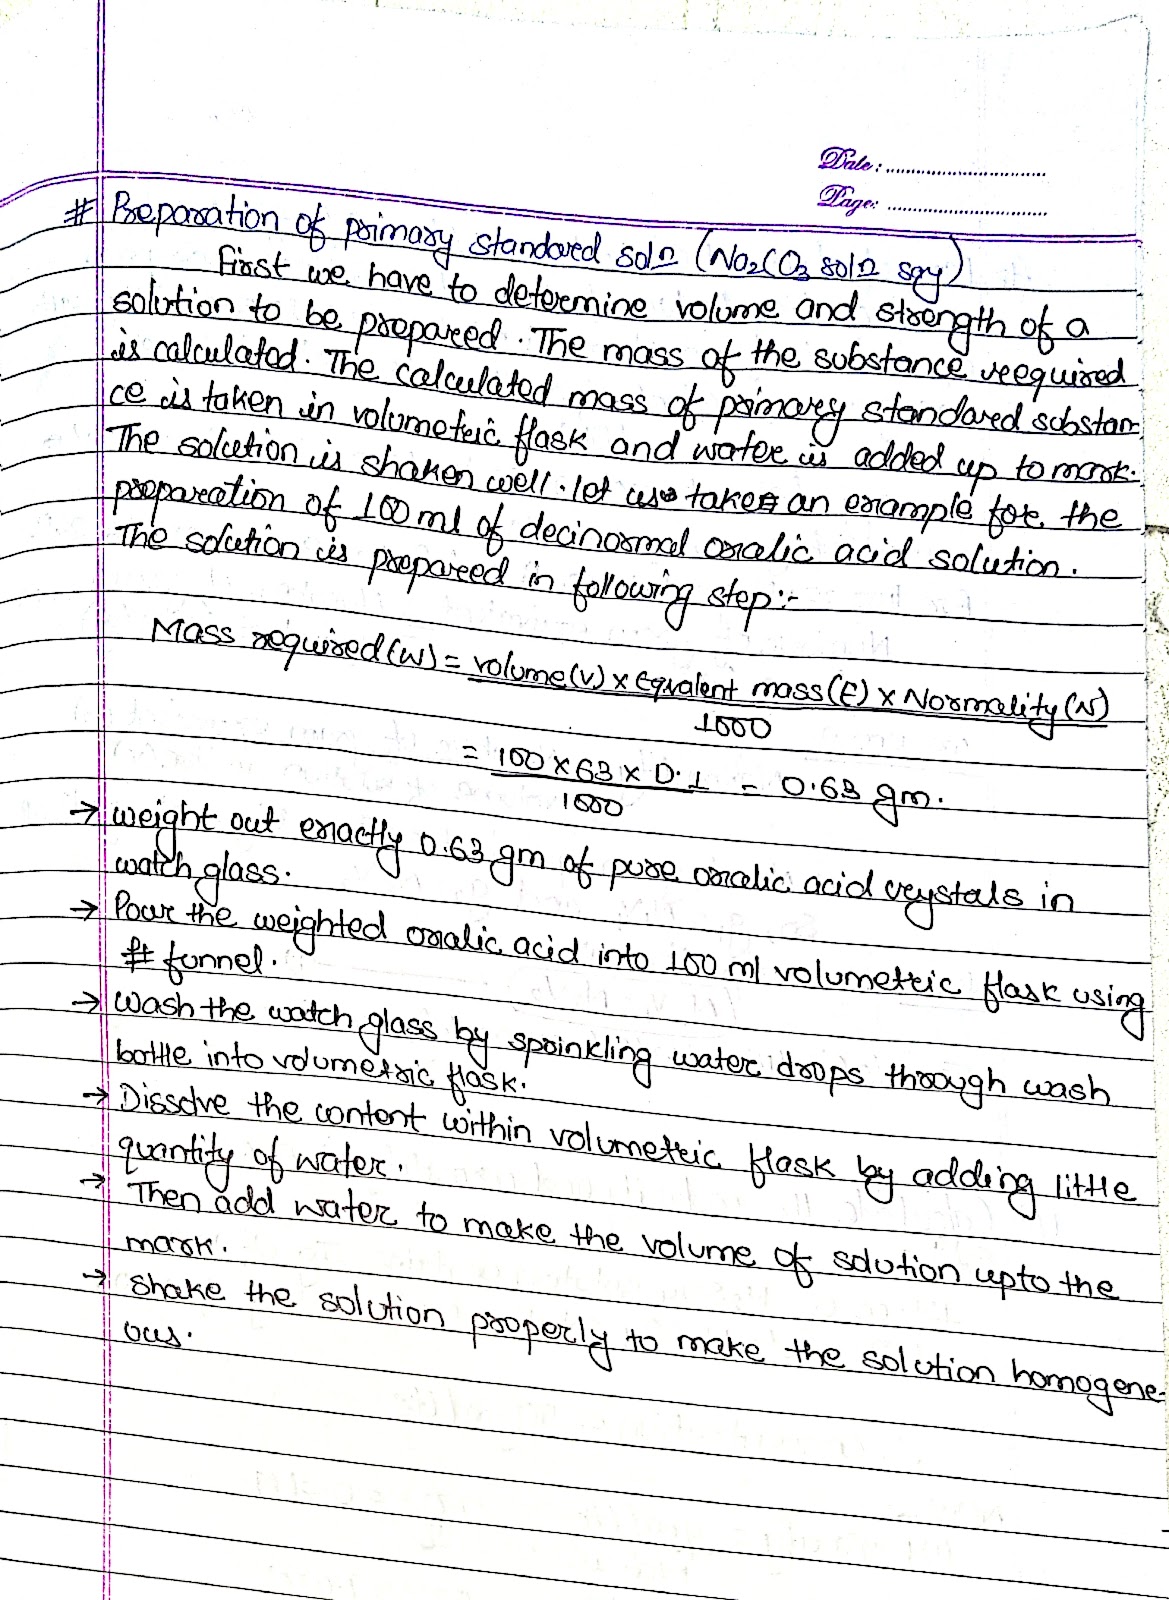 Date: ..............................
Page: ..............................
# Preparation of primary standared soln (Na2CO3 soln say)
First we have to determine volume and strength of a
solution to be prepared. The mass of the substance reequired
is calculated. The calculated mass of primarey standared substan
ce is taken in volumetric flask and water is added up to mark.
The solution is shaken well. let us take an example for the
preparation of 100 ml of decinormal oxalic acid solution.
The solution is prepareed in following step:-
Mass required (W) = volume(V) x Eqvalent mass(E) x Normality (N)
1000
= 100 x 63 x 0.1 = 0.63 gm.
1000
→ weight out exactly 0.63 gm of pure oxalic acid crystals in
watch glass.
→ Pour the weighted oxalic acid into 100 ml volumetric flask using
# funnel.
→ Wash the watch glass by sprinkling water drops through wash
bottle into volumetric flask.
→ Dissolve the content within volumetric flask by adding little
quantity of water.
→ Then add water to make the volume of solution upto the
mark.
→ Shake the solution properly to make the solution homogene-
ous.